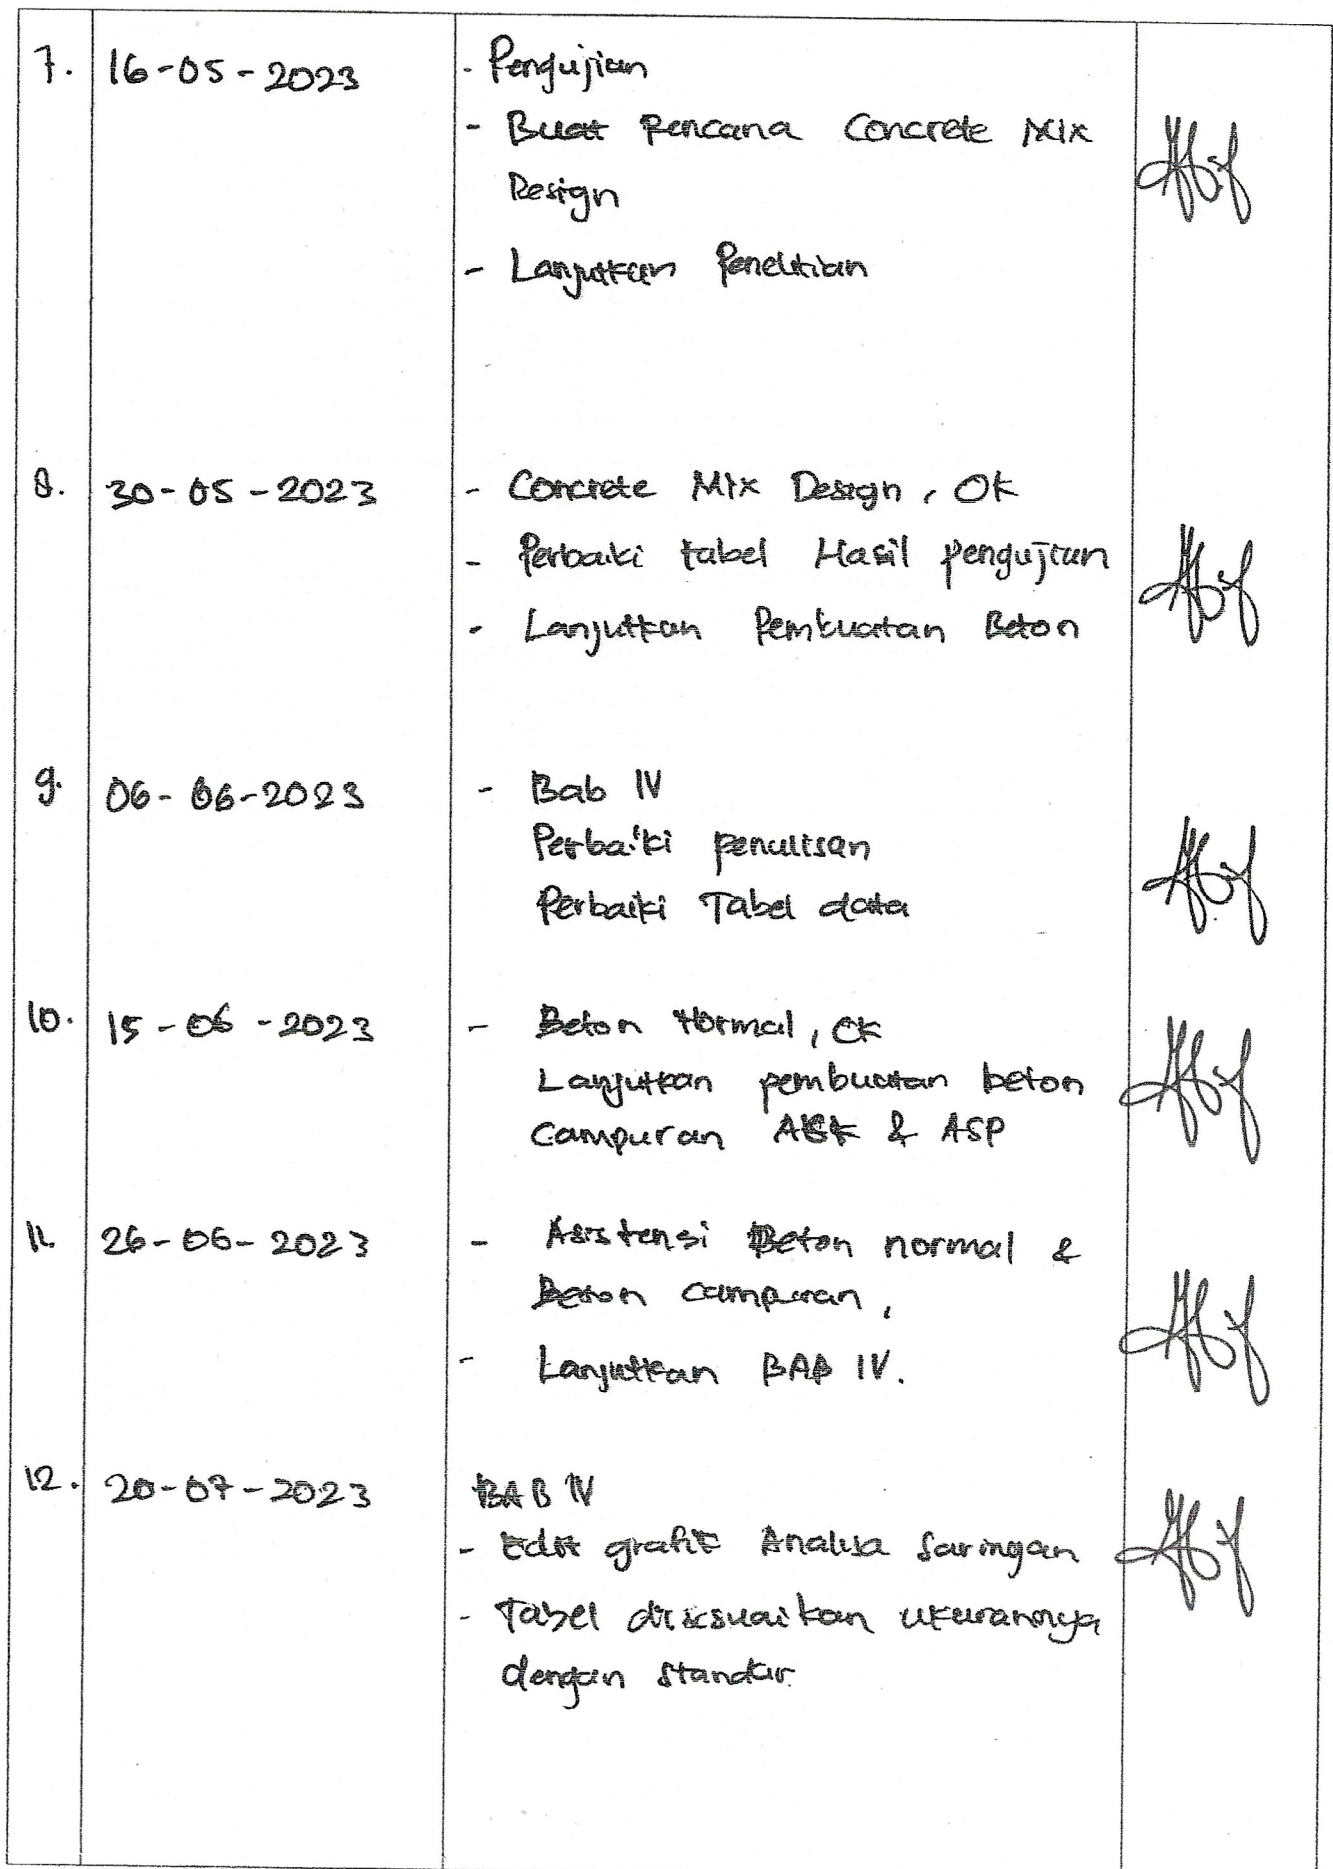 7. 16-05-2023 - Pengujian
- Buat Rencana Concrete Mix
Design
- Lanjutkan Penelitian
8. 30-05-2023 - Concrete Mix Design, Ok
- Perbaiki tabel Hasil pengujian
- Lanjutkan Pembuatan Beton
9. 06-06-2023 - Bab IV
Perbaiki penulisan
Perbaiki Tabel data
10. 15-06-2023 - Beton Normal, Ok
Lanjutkan pembuatan beton
Campuran ASK & ASP
11. 26-06-2023 - Asistensi Beton normal &
Beton campuran,
- Lanjutkan BAB IV.
12. 20-07-2023 BAB IV
- Edit grafik Analisa Saringan
- Tabel disesuaikan ukurannya
dengan standar.